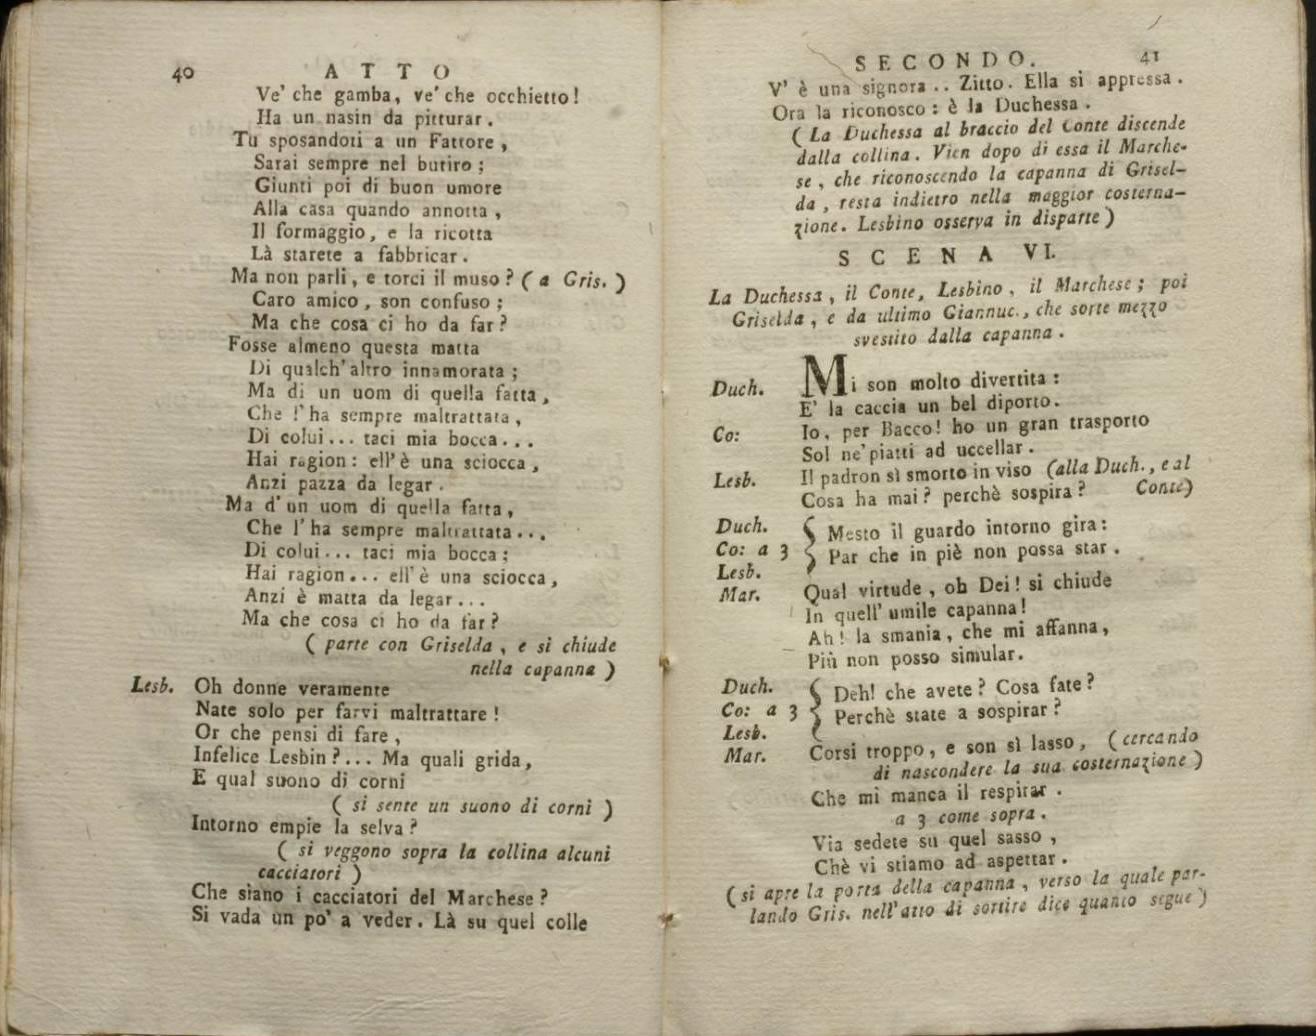 40 ATTO
Ve' che gamba, ve' che occhietto!
Ha un nasin da pitturar.
Tu sposandoti a un Fattore,
Sarai sempre nel butiro;
Giunti poi di buon umore
Alla casa quando annotta,
Il formaggio, e la ricotta
Là starete a fabbricar.
Ma non parli, e torci il muso? (a Gris.)
Caro amico, son confuso;
Ma che cosa ci ho da far?
Fosse almeno questa matta
Di qualch' altro innamorata;
Ma di un uom di quella fatta,
Che l' ha sempre maltrattata,
Di colui... taci mia bocca...
Hai ragion: ell' è una sciocca,
Anzi pazza da legar.
Ma d' un uom di quella fatta,
Che l' ha sempre maltrattata...
Di colui... taci mia bocca;
Hai ragion... ell' è una sciocca,
Anzi è matta da legar...
Ma che cosa ci ho da far?
(parte con Griselda, e si chiude
nella capanna)
Lesb. Oh donne veramente
Nate solo per farvi maltrattare!
Or che pensi di fare,
Infelice Lesbin?... Ma quali grida,
E qual suono di corni
(si sente un suono di corni)
Intorno empie la selva?
(si veggono sopra la collina alcuni
cacciatori)
Che siano i cacciatori del Marchese?
Si vada un po' a veder. Là su quel colle
SECONDO. 41
V' è una signora.. Zitto. Ella si appressa.
Ora la riconosco: è la Duchessa.
(La Duchessa al braccio del Conte discende
dalla collina. Vien dopo di essa il Marche-
se, che riconoscendo la capanna di Grisel-
da, resta indietro nella maggior costerna-
zione. Lesbino osserva in disparte)
SCENA VI.
La Duchessa, il Conte, Lesbino, il Marchese; poi
Griselda, e da ultimo Giannuc., che sorte mezzo
svestito dalla capanna.
Duch. Mi son molto divertita:
E' la caccia un bel diporto.
Co: Io, per Bacco! ho un gran trasporto
Sol ne' piatti ad uccellar.
Lesb. Il padron sì smorto in viso (alla Duch., e al
Cosa ha mai? perchè sospira? Conte)
Duch. Mesto il guardo intorno gira:
Co: a 3 Par che in piè non possa star.
Lesb.
Mar. Qual virtude, oh Dei! si chiude
In quell' umile capanna!
Ah! la smania, che mi affanna,
Più non posso simular.
Duch. Deh! che avete? Cosa fate?
Co: a 3 Perchè state a sospirar?
Lesb.
Mar. Corsi troppo, e son sì lasso, (cercando
di nascondere la sua costernazione)
Che mi manca il respirar.
a 3 come sopra.
Via sedete su quel sasso,
Chè vi stiamo ad aspettar.
(si apre la porta della capanna, verso la quale par-
lando Gris. nell' atto di sortire dice quanto segue)